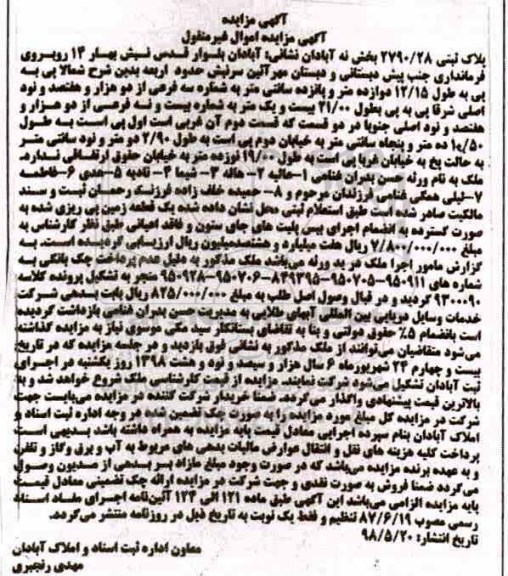 آگهی مزایده
آگهی مزایده اموال غیرمنقول
پلاک ثبتی ۲۷۹۰/۲۸ بخش نه آبادان نشانی: آبادان بلوار قدس نبش بهار ۱۴ روبروی
فرمانداری جنب پیش دبستانی و دبستان مهرآئین سرنبش حدود اربعه بدین شرح شمالا پی به
پی به طول ۱۲/۱۵ دوازده متر و پانزده سانتی متر به شماره سه فرعی از دو هزار و هفتصد و نود
اصلی شرقا پی به پی بطول ۲۱/۰۰ بیست و یک متر به شماره بیست و نه فرعی از دو هزار و
هفتصد و نود اصلی جنوبا در دو قسمت که قسمت دوم آن غربی است اول پی است به طول
۱۰/۵۰ ده متر و پنجاه سانتی متر به خیابان دوم پی است به طول ۲/۹۰ دو متر و نود سانتی متر
به حالت پخ به خیابان غربا پی است به طول ۱۹/۰۰ نوزده متر به خیابان حقوق ارتفاقی ندارد.
ملک به نام ورثه حسن بدران غنامی ۱-عالیه ۲-هاله ۳- شیما ۴- نادیه ۵-عدی ۶-فاطمه
۷-لیلی همگی غنامی فرزندان مرحوم و ۸- حمیده خلف زاده فرزند رحمان ثبت و سند
مالکیت صادر شده است طبق استعلام ثبتی محل نشان داده شده یک قطعه زمین پی ریزی شده به
صورت گسترده به انضمام اجرای بیس پلیت های جای ستون و فاقد اعیانی طبق نظر کارشناس به
مبلغ ۷/۸۰۰/۰۰۰/۰۰۰ ریال هفت میلیارد و هشتصدمیلیون ریال ارزیابی گردیده است. به
گزارش مامور اجرا ملک در ید ورثه می‌باشد ملک مذکور به دلیل عدم پرداخت چک بانکی به
شماره های ۹۵۰۹۱۱-۹۵۰۷۰۵-۸۴۹۳۹۵-۹۵۰۷۰۶-۹۵۰۹۲۸ منجر به تشکیل پرونده کلاسه
۹۳۰۰۰۹۰ گردید و در قبال وصول اصل طلب به مبلغ ۸۲۵/۰۰۰/۰۰۰ ریال بابت بدهی شرکت
خدمات وسایل دریایی بین المللی آبهای طلایی به مدیریت حسن بدران غنامی بازداشت گردیده
است بانضمام ۵٪ حقوق دولتی و بنا به تقاضای بستانکار سید مکی موسوی نیاز به مزایده گذاشته
می‌شود متقاضیان می‌توانند از ملک مذکور به نشانی فوق بازدید و در جلسه مزایده که در تاریخ
بیست و چهارم ۲۴ شهریورماه ۶ سال هزار و سیصد و نود و هشت ۱۳۹۸ روز یکشنبه در اجرای
ثبت آبادان تشکیل می‌شود شرکت نمایند. مزایده از قیمت کارشناسی ملک شروع خواهد شد و به
بالاترین قیمت پیشنهادی واگذار می‌گردد. ضمنا خریدار شرکت کننده در مزایده می‌بایست جهت
شرکت در مزایده کل مبلغ مورد مزایده را به صورت چک تضمین شده در وجه اداره ثبت اسناد و
املاک آبادان بنام سپرده اجرایی معادل قیمت پایه مزایده به همراه داشته باشد بدیهی است
پرداخت کلیه هزینه های نقل و انتقال عوارض مالیات بدهی های مربوط به آب و برق وگاز و تلفن
و به عهده برنده مزایده می‌باشد که در صورت وجود مبلغ مازاد بر بدهی از مدیون وصول
می‌گردد ضمنا فروش به صورت نقدی و جهت شرکت در مزایده ارائه چک تضمینی معادل قیمت
پایه مزایده الزامی می‌باشد این آگهی طبق ماده ۱۲۱ الی ۱۲۴ آئین‌نامه اجرای مفاد اسناد
رسمی مصوب ۸۷/۶/۱۹ تنظیم و فقط یک نوبت به تاریخ ذیل در روزنامه منتشر می‌گردد.
تاریخ انتشار: ۹۸/۵/۲۰
معاون اداره ثبت اسناد و املاک آبادان
مهدی رنجبری